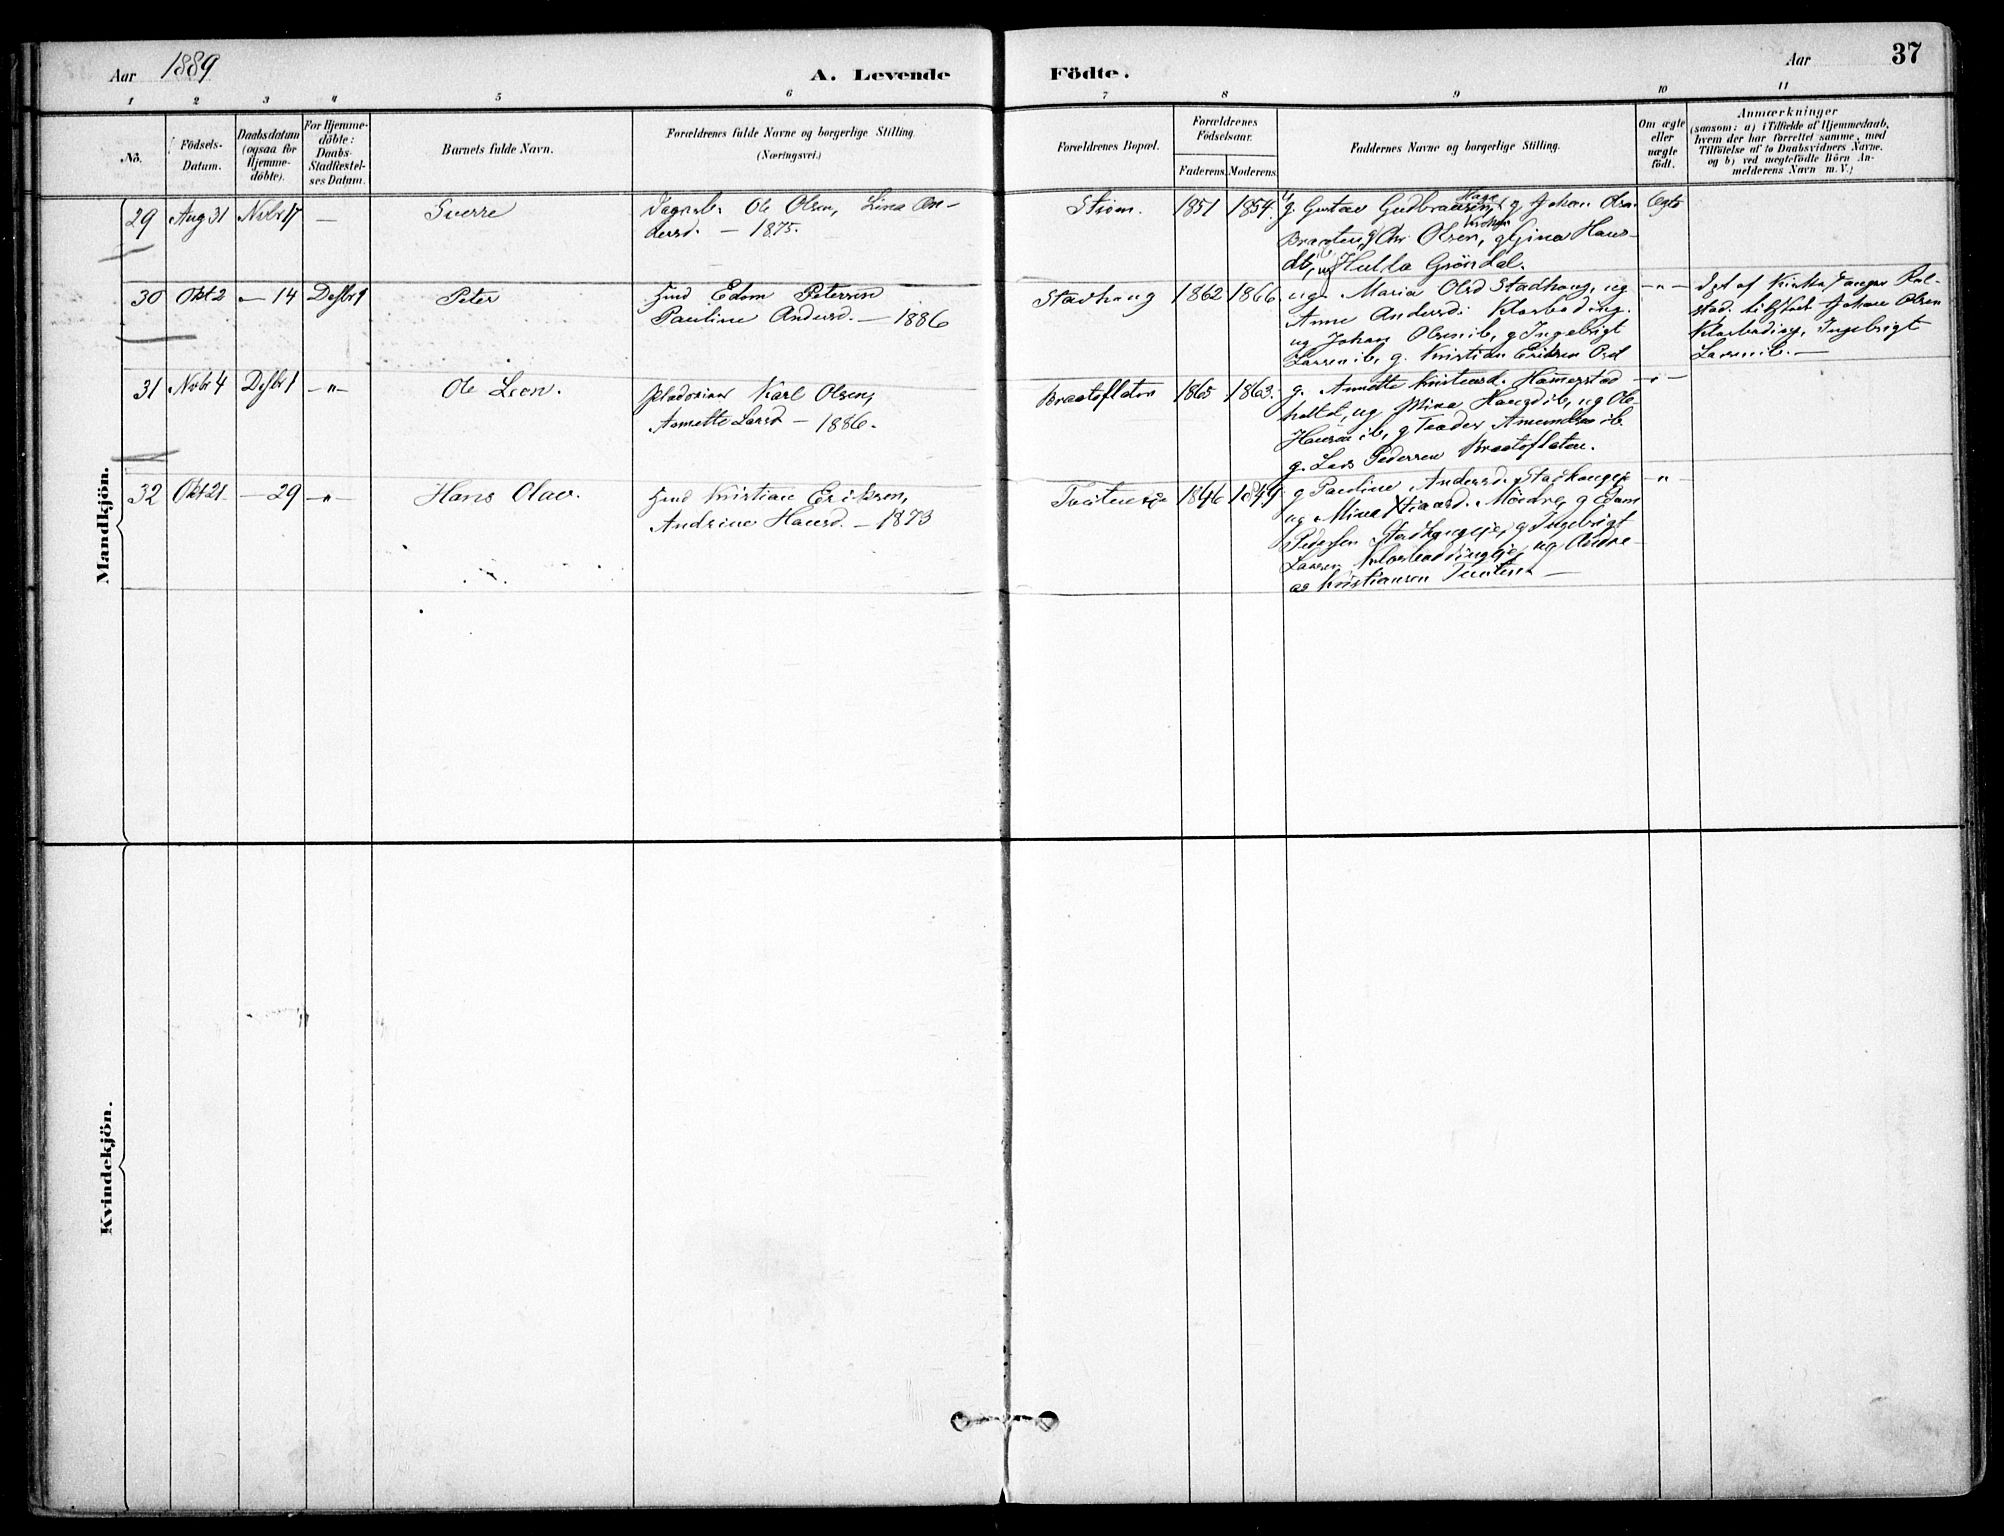 Aar 1889
A. Levende Födte.
Aar
37
1 2 3 4 5 6 7 8 9 10 11
No.
Födsels-
Datum.
Daabsdatum
(ogsaa for
Hjemme-
döbte).
For Hjemme-
döbte:
Daabs-
Stadfæstel-
ses Datum.
Barnets fulde Navn.
Forældrenes fulde Navne og borgerlige Stilling.
(Næringsvei.)
Forældrenes Bopæl.
Forældrenes
Födselsaar.
Faderens. Moderens.
Faddernes Navne og borgerlige Stilling.
Om ægte
eller
uægte
födt.
Anmærkninger
(saasom: a) i Tilfælde af Hjemmedaab,
hvem der har forrettet samme, med
Tilföielse af to Daabsvidners Navne.
og b) ved uegtefödte Börn An-
melderens Navn m. V.)
Mandkjön.
29 Aug 31 Novbr 17 — Sverre
Ole Olsen, Lina An-
dersd. — 1875.
Strøm. 1851 1854.
g. Gustav Gudbrandsen, g Johan Olsn
Braaten, g Chr. Olsen, g Gina Hans-
db, ug Hulla Gröndal.
Ægte
30 Okt 2 — 14 Desbr 1 Peter
Hmd Edom Petersen
Pauline Andersd. — 1886
Stadhaug 1862 1866.
ug. Maria Olsd Stadhaug, ug
Anne Andersd. Klorbading.
ug Johan Olsen ib, g Ingebrigt
Larsen ib, g. Kristian Eriksen
—"—
Dpt af Kirkesanger Rol-
stad. Johan Olsen
Klorbading, Ingebrigt
Larsen ib. —
31 Novbr 4 Desbr 1 —"— Ole Leon.
Karl Olsen,
Annette Larsd — 1886.
Braatefladen 1865 1863.
g. Annette Kristensd. Hamerstad
holtet, ug Mina Hansd ib, ug Ole
Hansen ib, g Teoder Amundsen ib
g. Lars Pedersen Braatefladen.
—"—
32 Okt 21. — 29 —"— Hans Olav.
Hmd Kristian Eriksen,
Andrine Hansd. — 1873
1846 1849.
g Pauline Andersd. Stadhaugeje
ug Mina Hansd. Möndre, g Edam
Pedersen Stadhaugeje, g Ingebrigt
Larsen Klorbadingeje, ug Andre-
as Kristiansen —
—"—
Kvindekjön.